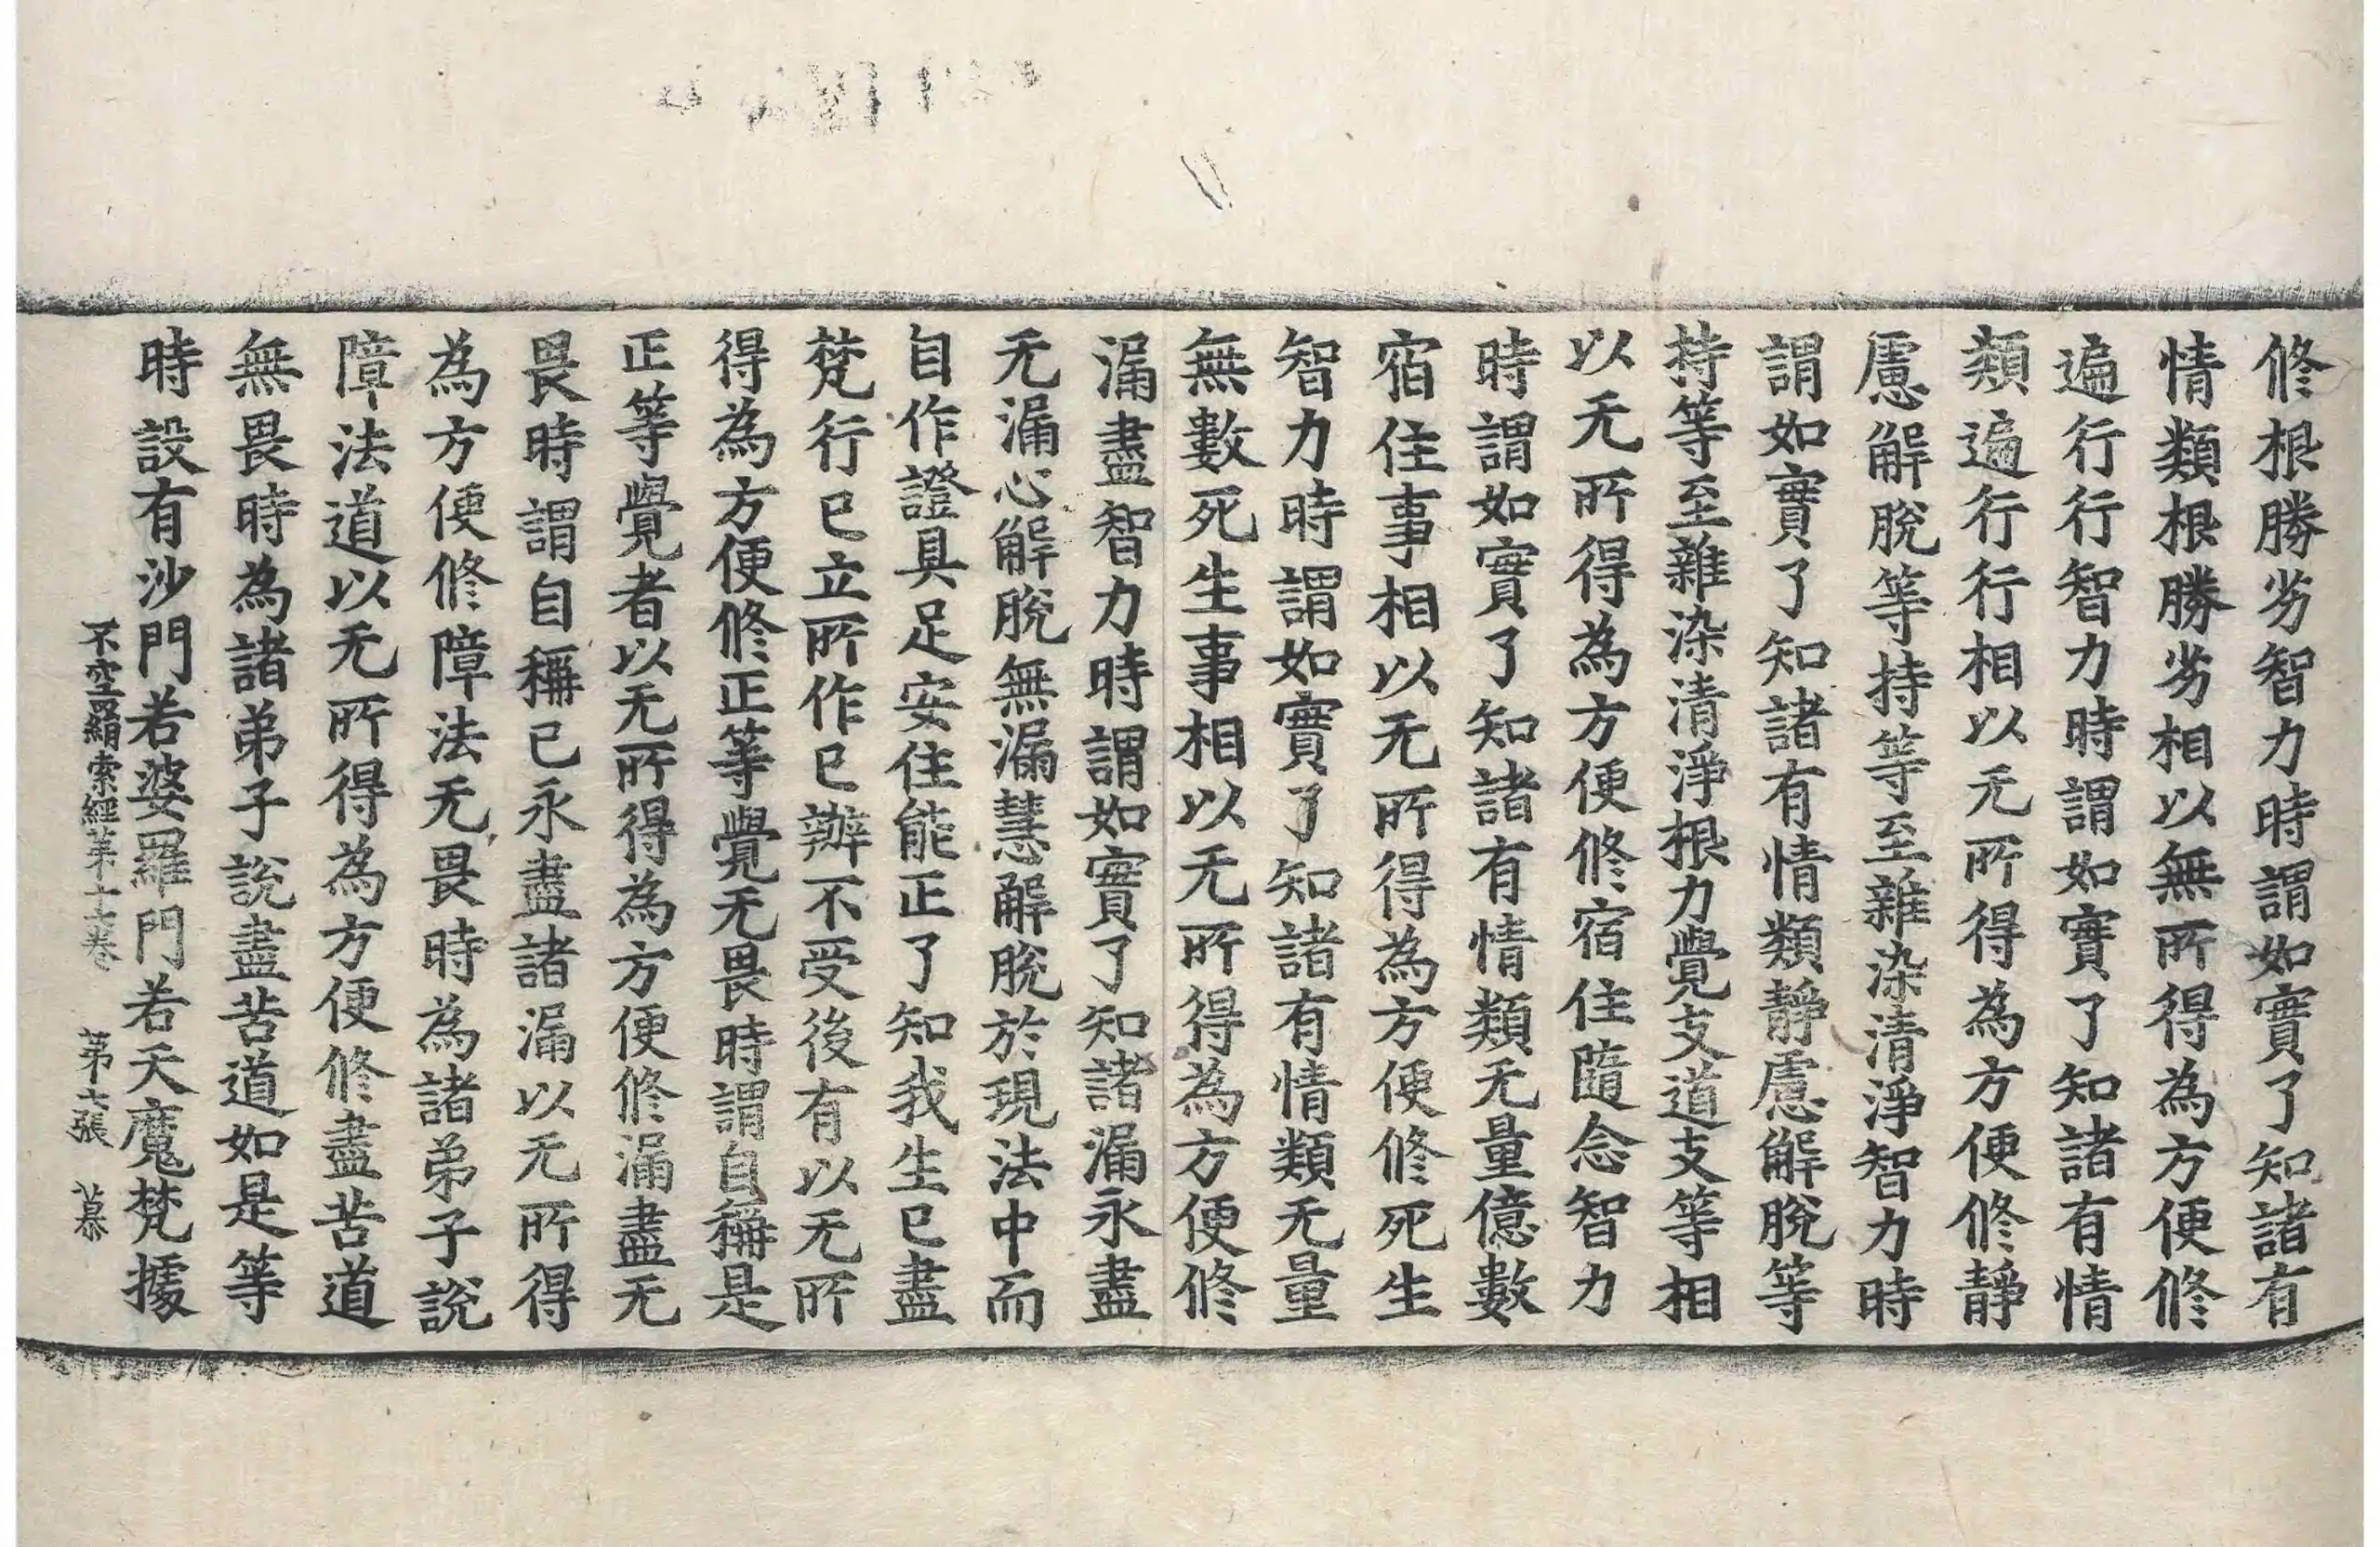 修根勝劣智力時謂如實了知諸有
情類根勝劣相以無所得為方便修
遍行行智力時謂如實了知諸有情
類遍行行相以无所得為方便修靜
慮解脫等持等至雜染清淨智力時
謂如實了知諸有情類靜慮解脫等
持等至雜染清淨根力覺支道支等相
以无所得為方便修宿住隨念智力
時謂如實了知諸有情類无量億數
宿住事相以无所得為方便修死生
智力時謂如實了知諸有情類无量
無數死生事相以无所得為方便修
漏盡智力時謂如實了知諸漏永盡
无漏心解脫無漏慧解脫於現法中而
自作證具足安住能正了知我生已盡
梵行已立所作已辦不受後有以无所
得為方便修正等覺无畏時謂自稱是
正等覺者以无所得為方便修漏盡无
畏時謂自稱已永盡諸漏以无所得
為方便修障法无畏時為諸弟子說
障法道以无所得為方便修盡苦道
無畏時為諸弟子說盡苦道如是等
時設有沙門若婆羅門若天魔梵據
不空羂索經苐十七卷 苐七張 慕